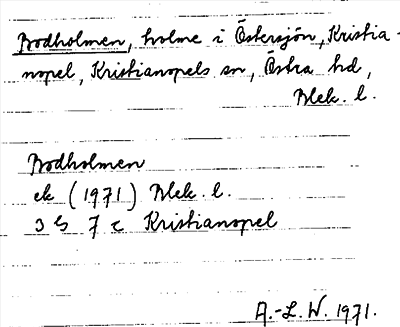 Bodholmen, holme i Östersjön, Kristia-
nopel, Kristianopels sn, Östra hd,
Blek. l.
Bodholmen
ek (1971) Blek. l.
3 G 7 c Kristianopel
A.-L. W. 1971.